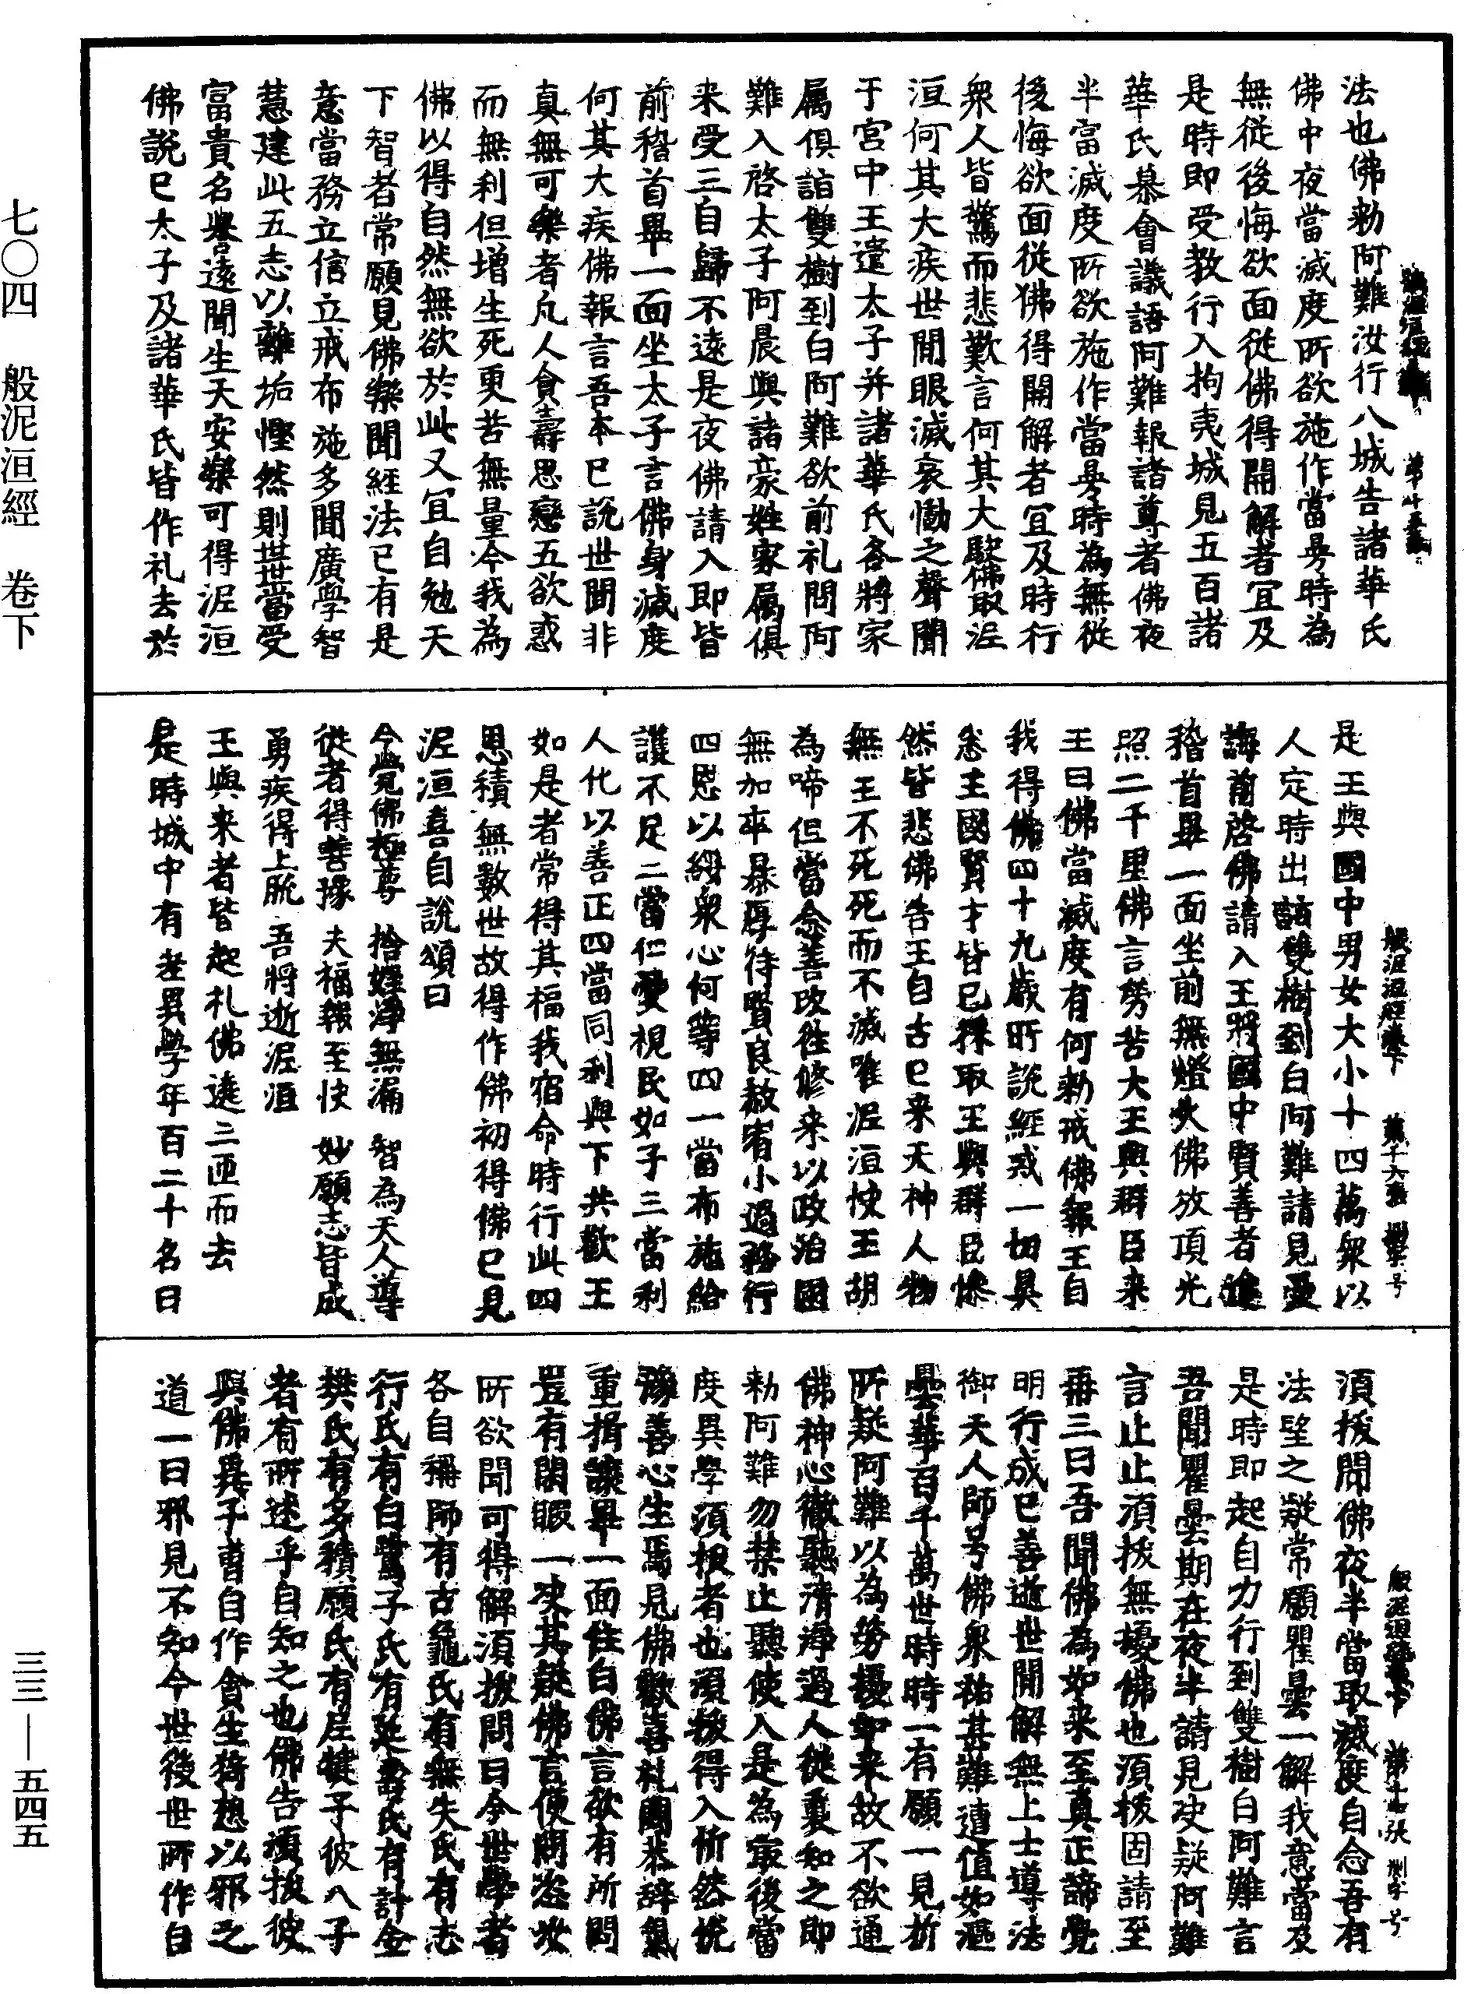 七〇四　般泥洹經　卷下
三三—五四五
法也佛勑阿難汝行入城告諸華氏
佛中夜當滅度所欲施作當及時為
無從後悔欲面從佛得開解者宜及
是時即受教行入拘夷城見五百諸
華氏慕會議語阿難報諸尊者佛夜
半當滅度所欲施作當及時為無從
後悔欲面從佛得開解者宜及時行
衆人皆驚而悲歎言何其大駛佛取泥
洹何其大疾世間眼滅哀慟之聲聞
于宮中王遣太子并諸華氏各將家
属俱詣雙樹到白阿難欲前礼問阿
難入啓太子阿晨與諸豪姓家属俱
来受三自歸不遠是夜佛請入即皆
前稽首畢一面坐太子言佛身滅度
何其大疾佛報言吾本已說世間非
真無可樂者凡人貪壽思戀五欲惑
而無利但增生死更苦無量今我為
佛以得自然無欲於此又宜自勉天
下智者常願見佛樂聞經法已有是
意當務立信立戒布施多聞廣學智
慧建此五志以離垢慳然則世世當受
富貴名譽遠聞生天安樂可得泥洹
佛說已太子及諸華氏皆作礼去於
般泥洹經卷下　第十六張　𠛬字号
是王與國中男女大小十四萬衆以
人定時出詣雙樹到白阿難請見受
誨前啓佛請入王將國中賢善者進
稽首畢一面坐前無燈火佛放頂光
照二千里佛言勞苦大王與群臣来
王曰佛當滅度有何勑戒佛報王自
我得佛四十九歲所說經戒一切具
悉王國賢才皆已採取王與群臣慘
然皆悲佛告王自古已来天神人物
無王不死死而不滅唯泥洹快王胡
為啼但當念善改往修来以政治國
無加卒暴厚待賢良赦宥小過務行
四恩以綏衆心何等四一當布施給
護不足二當仁愛視民如子三當利
人化以善正四當同利與下共歡王
如是者常得其福我宿命時行此四
恩積無數世故得作佛初得佛已見
泥洹喜自說頌曰
今覺佛極尊　捨婬淨無漏　智為天人導
從者得喜豫　夫福報至快　妙願志皆成
勇疾得上脫　吾將逝泥洹
王與来者皆起礼佛遶三匝而去
是時城中有老異學年百二十名曰
般泥洹經卷下　第十七張　𠛬字号
須拔聞佛夜半當取滅度自念吾有
法望之疑常願瞿曇一解我意當及
是時即起自力行到雙樹白阿難言
吾聞瞿曇期在夜半請見决疑阿難
言止止須拔無擾佛也須拔固請至
再三曰吾聞佛為如来至真正諦覺
明行成已善逝世間解無上士導法
御天人師号佛衆祐甚難遭值如漚
曇華百千萬世時時一有願一見折
所疑阿難以為勞擾如来故不欲通
佛神心徹聽清淨過人從裏知之即
勑阿難勿禁止聽使入是為最後當
度異學須拔者也須拔得入忻然悅
豫善心生焉見佛歡喜礼圍恭辞氣
重揖讓畢一面住白佛言欲有所問
豈有閑暇一决其疑佛言便問恣汝
所欲聞可得解須拔問曰今世學者
各自稱師有古龜氏有無失氏有志
行氏有白鷺子氏有延壽氏有計金
樊氏有多積願氏有尼犍子彼八子
者有所述乎自知之也佛告須拔彼
與佛異子曹自作貪生猗想以邪之
道一曰邪見不知今世後世所作自